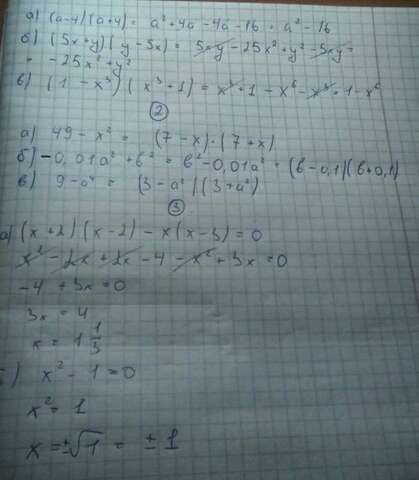 а) (a-4)(a+4) = a² + 4a - 4a - 16 = a² - 16
б) (5x+y)(y-5x) = 5xy - 25x² + y² - 5xy =
= -25x² + y²
в) (1 - x³)(x³+1) = x³ + 1 - x⁶ - x³ = 1 - x⁶
②
а) 49 - x² = (7-x)·(7+x)
б) -0,01a² + b² = b² - 0,01a² = (b-0,1)(b+0,1)
в) 9 - a⁴ = (3-a²)(3+a²)
③
а) (x+2)(x-2) - x(x-3) = 0
x² - 2x + 2x - 4 - x² + 3x = 0
-4 + 3x = 0
3x = 4
x = 1 1/3
) x² - 1 = 0
x² = 1
x = ±√1 = ±1